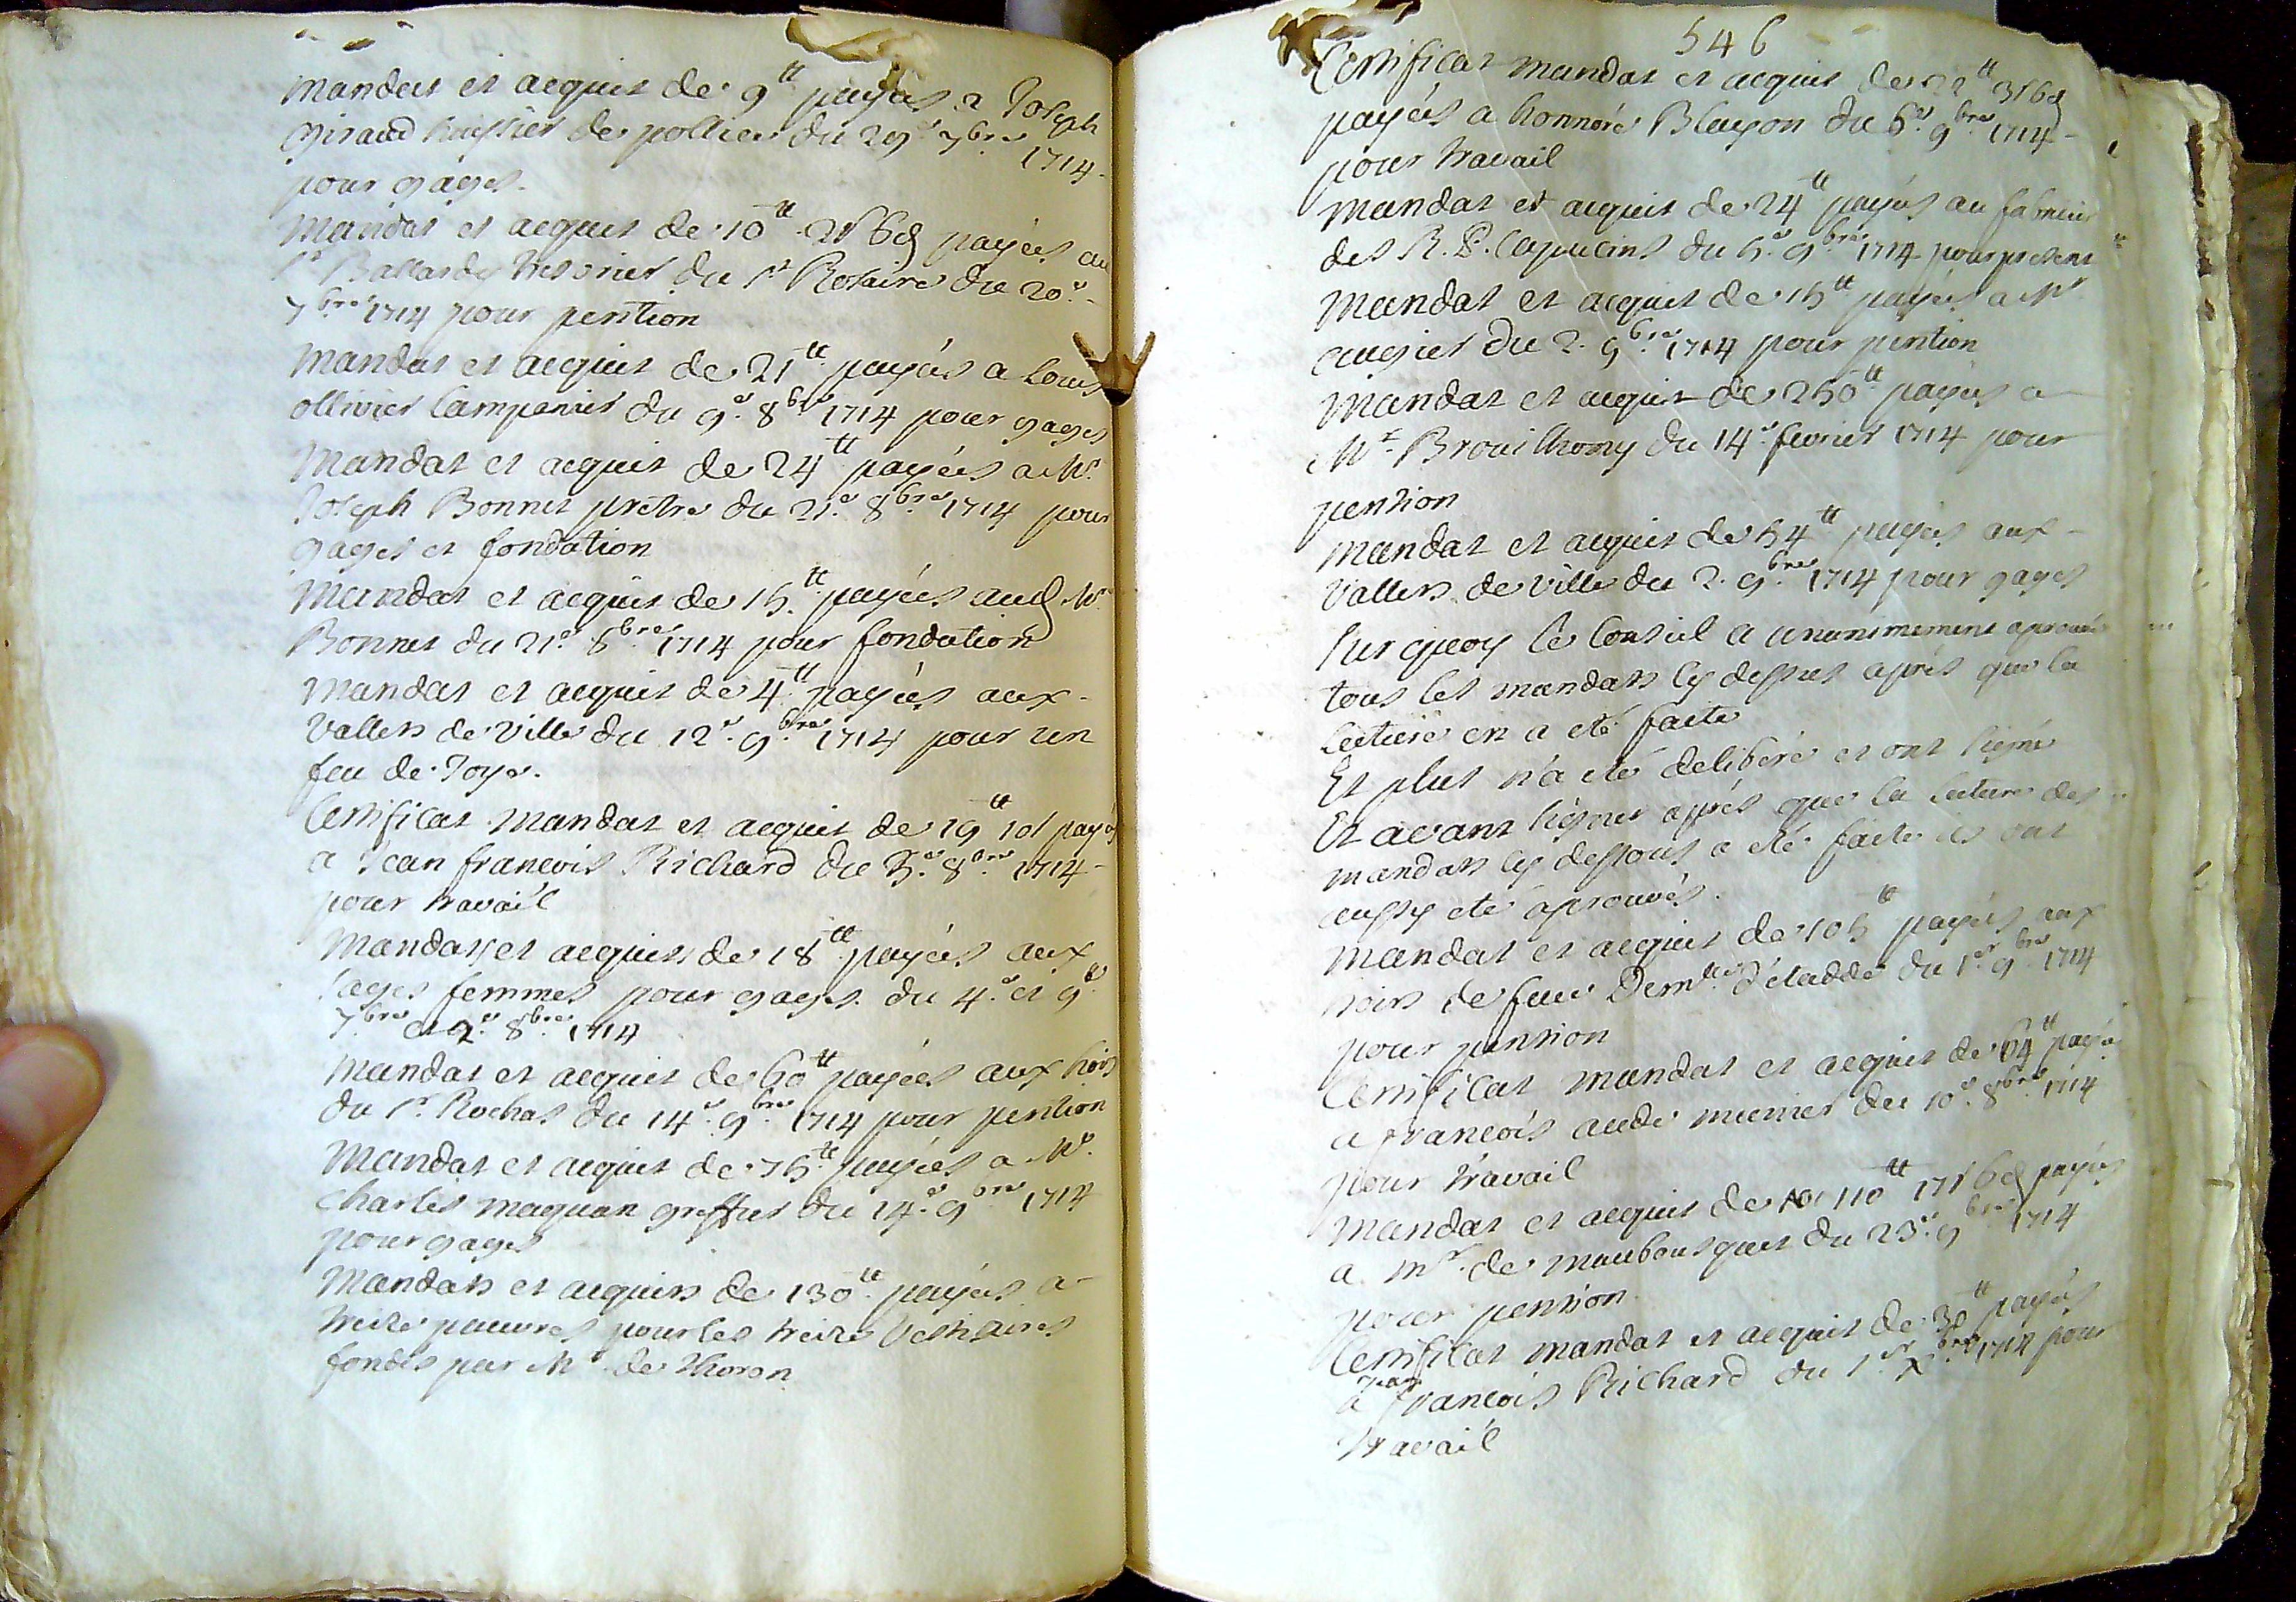 Mandat et acquit de 9tt payées a Joseph
Giraud huissier de pollice du 29e 7bre
1714
pour gages.
Mandat et acquit de 10tt 2s 6d payées au
sr Ballardy tresorier du st Rosaire du 20e
7bre 1714 pour pention
Mandat et acquit de 21tt payées a Louis
ollivier Campanier du 9e 8bre 1714 pour gages
Mandat et acquit de 24tt payées a Mr
Joseph Bonnet prêtre du 21e 8bre 1714 pour
gages et fondation
Mandat et acquit de 15tt payées aud Mr
Bonnet du 21e 8bre 1714 pour fondation
Mandat et acquit de 4tt payées aux
vallets de ville du 12e 9bre 1714 pour un
feu de Joye.
Certificat mandat et acquit de 19tt 10s payés
a Jean francois Richard du 5e 8bre 1714
pour travail
Mandats et acquits de 18tt payées aux
sages femmes pour gages du 4e et 9e
7bre et 2e 8bre 1714
Mandat et acquit de 60tt payées aux hoirs
du sr Rochas du 14e 9bre 1714 pour pention
Mandat et acquit de 75tt payées a Me
Charles maquan greffier du 14e 9bre 1714
pour gages
Mandats et acquits de 130tt payées a
treize pauvres pour les treize Vestiaires
fondés par Mr de Thoron
546
Certificat mandat et acquit de 22tt 3s 6d
payées a honnoré Blayon du 6e 9bre 1714
pour travail
Mandat et acquit de 24tt payés au
des R. P. Capucins du 5e 9bre 1714 pour present
Mandat et acquit de 15tt payées a Mr
augier du 2. 9bre 1714 pour pention
Mandat et acquit de 250tt payées a
Mr Brouilhony du 14e fevrier 1714 pour
pention
Mandat et acquit de 54tt payées aux
vallets de ville du 2. 9bre 1714 pour gages
sur quoy le Conseil a unanimement aprouvé
tous les mandats cy dessus après que la
lecture en a eté faite
Et plus n'a eté deliberé et ont signé
Et avant signer après que la lecture des
mandats cy dessous a eté faite ils ont
aussy eté aprouvés.
Mandat et acquit de 105tt payées aux
hoirs de feue Demlle du 1er 9bre 1714
pour pention
Certificat mandat et acquit de 64tt payés
a francois aude munier du 10e 8bre 1714
pour travail
Mandat et acquit de 110tt 17s 6d payées
a mr. de maubousquet du 23e 9bre 1714
pour pention
Certificat mandat et acquit de 30tt payés
Jean
a francois Richard du 1er Xbre 1714 pour
travail